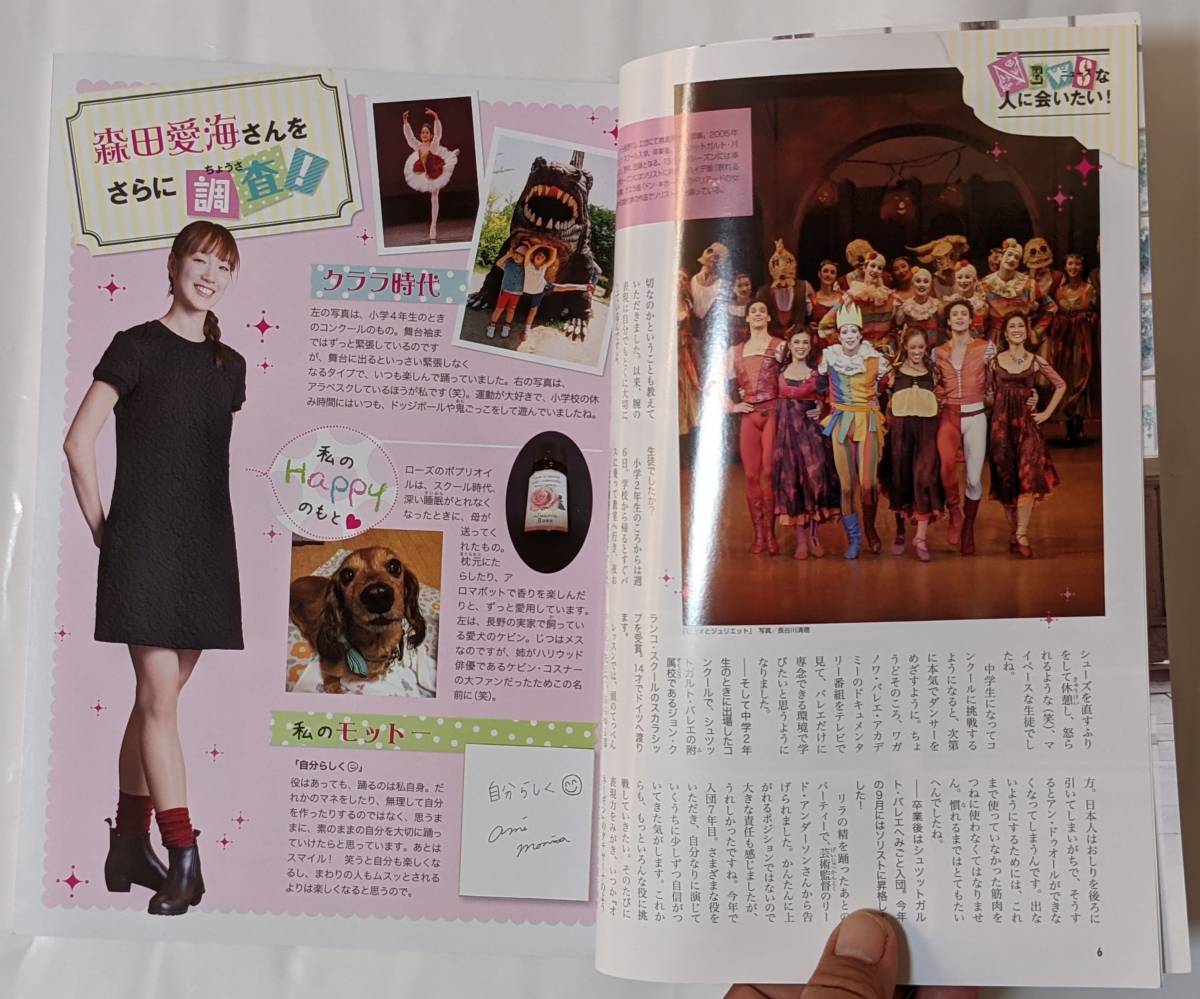 森田愛海さんを
さらに調査!
ちょうさ
クララ時代
左の写真は、小学4年生のとき
のコンクールのもの。舞台袖ま
ではずっと緊張しているのです
が、舞台に出るといっさい緊張しなく
なるタイプで、いつも楽しんで踊っていました。右の写真は、
アラベスクしているほうが私です(笑)。運動が大好きで、小学校の休
み時間にはいつも、ドッジボールや鬼ごっこをして遊んでいましたね。
私の
Happy
のもと
ローズのポプリオイ
ルは、スクール時代、
深い睡眠がとれなく
なったときに、母が
送ってく
れたもの。
枕元にた
らしたり、ア
ロマポットで香りを楽しんだ
りと、ずっと愛用しています。
左は、長野の実家で飼ってい
る愛犬のケビン。じつはメス
なのですが、姉がハリウッド
俳優であるケビン・コスナー
の大ファンだったためこの名
前に(笑)。
私のモットー
「自分らしく☺」
役はあっても、踊るのは私自身。だ
れかのマネをしたり、無理して自分
を作ったりするのではなく、思うま
まに、素のままの自分を大切に踊っ
ていけたらと思っています。あとは
スマイル! 笑うと自分も楽しくな
るし、まわりの人もムスッとされる
よりは楽しくなると思うので。
自分らしく☺
ami
morita
NEWSな
人に会いたい!
写真/長谷川清徳
切なのかということも教えて
いただきました。以来、腕の
表現は自分でもとくに大切に
生徒でしたか?
小学2年生のころからは週
6日、学校から帰るとすぐバ
シューズを直すふり
をして休憩し、怒ら
れるような(笑)、マ
イペースな生徒でし
たね。
中学生になってコ
ンクールに挑戦する
ようになると、次第
に本気でダンサーを
めざすように。ちょ
うどそのころ、ワガ
ノワ・バレエ・アカデ
ミーのドキュメンタ
リー番組をテレビで
見て、バレエだけに
専念できる環境で学
びたいと思うように
なりました。
——そして中学2年
生のときに出場したコ
ンクールで、シュツッ
トガルト・バレエの附
属校であるジョン・ク
ランコ・スクールのスカラシッ
プを受賞。14才でドイツへ渡り
ます。
方。日本人はおしりを後ろに
引いてしまいがちで、そうす
るとアン・ドゥオールができな
くなってしまうんです。出な
いようにするためには、これ
まで使っていなかった筋肉を
つねに使わなくてはなりませ
ん。慣れるまではとてもたい
へんでしたね。
——卒業後はシュツットガル
ト・バレエへみごと入団。今年
の9月にはソリストに昇格し
した!
リラの精を踊ったあとの
パーティーで、芸術監督のリー
ド・アンダーソンさんから告
げられました。かんたんに上
がれるポジションではないので
大きな責任も感じましたが、
うれしかったですね。今年で
入団7年目。さまざまな役を
いただき、自分なりに演じて
いくうちに少しずつ自信がつ
いてきた気がします。これか
らも、もっといろんな役に挑
戦していきたい。そのたびに
表現力をみがき、いつか「オ
6